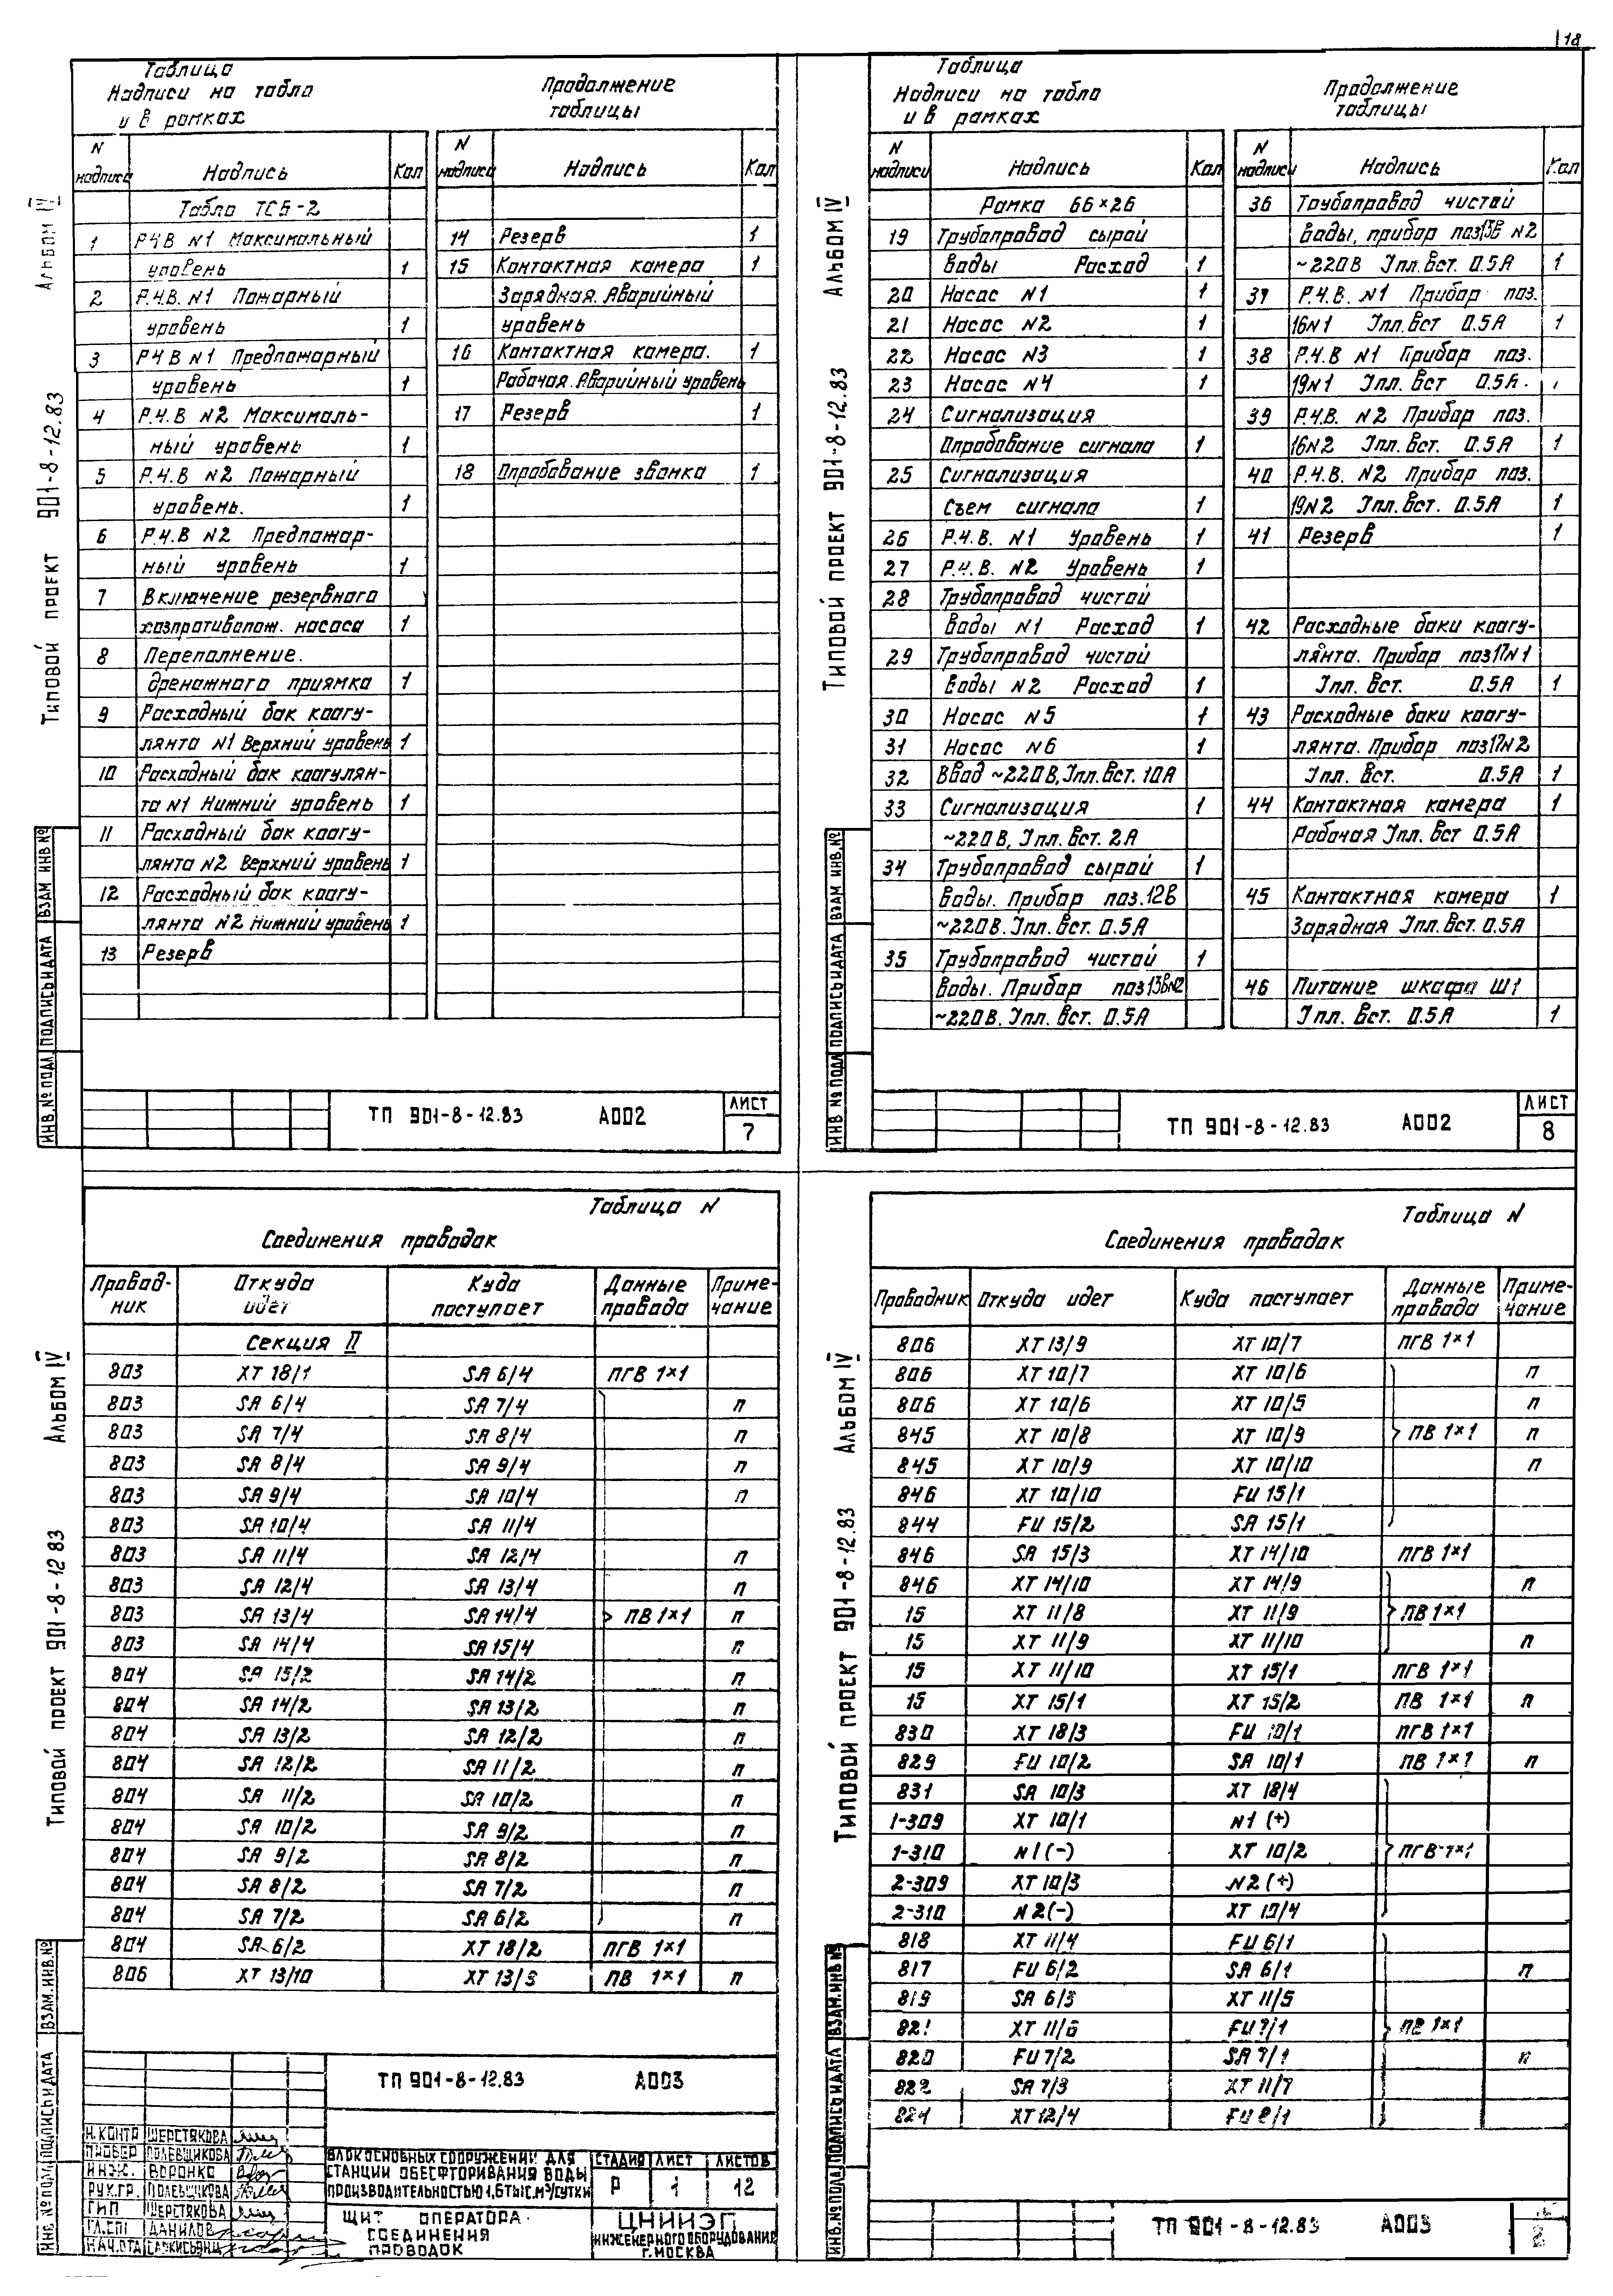 18
Таблица
Надписи на табло
и в рамках
Продолжение
таблицы
N надписи Надпись Кол
N надписи Надпись Кол
Табло ТСБ-2
1 Р.Ч.В №1 Максимальный
уровень 1
2 Р.Ч.В. №1 Пожарный
уровень 1
3 РЧВ №1 Предпожарный
уровень 1
4 Р.Ч.В №2 Максималь-
ный уровень 1
5 Р.Ч.В №2 Пожарный
уровень. 1
6 Р.Ч.В №2 Предпожар-
ный уровень 1
7 Включение резервного
хозпротивопож. насоса 1
8 Переполнение.
дренажного приямка 1
9 Расходный бак коагу-
лянта №1 Верхний уровень 1
10 Расходный бак коагулян-
та №1 Нижний уровень 1
11 Расходный бак коагу-
лянта №2 Верхний уровень 1
12 Расходный бак коагу-
лянта №2 Нижний уровень 1
13 Резерв
14 Резерв 1
15 Контактная камера 1
Зарядная. Аварийный
уровень
16 Контактная камера. 1
Рабочая. Аварийный уровень
17 Резерв 1
18 Опробование звонка 1
ТП 901-8-12.83 А002
ЛИСТ
7
Типовой проект 901-8-12.83 Альбом IV
ИНВ.№ ПОДЛ. ПОДПИСЬ И ДАТА ВЗАМ ИНВ.№
Таблица
Надписи на табло
и в рамках
Продолжение
таблицы
N надписи Надпись Кол
N надписи Надпись Кол
Рамка 66×26
19 Трубопровод сырой
воды Расход 1
20 Насос №1 1
21 Насос №2 1
22 Насос №3 1
23 Насос №4 1
24 Сигнализация
Опробование сигнала 1
25 Сигнализация
Съем сигнала 1
26 Р.Ч.В. №1 Уровень 1
27 Р.Ч.В. №2 Уровень 1
28 Трубопровод чистой
воды №1 Расход 1
29 Трубопровод чистой
воды №2 Расход 1
30 Насос №5 1
31 Насос №6 1
32 Ввод ~220В, Iпл. вст. 10А
33 Сигнализация 1
~220В, Iпл. вст. 2А
34 Трубопровод сырой 1
воды. Прибор поз. 12В
~220В. Iпл. вст. 0.5А
35 Трубопровод чистой 1
воды. Прибор поз 13в№2
~220В. Iпл. вст. 0.5А
36 Трубопровод чистой
воды, прибор поз 13в №2
~220В Iпл. вст. 0.5А 1
37 Р.Ч.В. №1 Прибор поз.
16№1 Iпл. вст 0.5А 1
38 Р.Ч.В №1 Прибор поз.
19№1 Iпл. вст 0.5А. 1
39 Р.Ч.В. №2 Прибор поз.
16№2 Iпл. вст. 0.5А 1
40 Р.Ч.В. №2 Прибор поз.
19№2 Iпл. вст. 0.5А 1
41 Резерв 1
42 Расходные баки коагу-
лянта. Прибор поз17№1
Iпл. вст. 0.5А 1
43 Расходные баки коагу-
лянта. Прибор поз17№2
Iпл. вст. 0.5А 1
44 Контактная камера 1
Рабочая Iпл. вст 0.5А
45 Контактная камера 1
Зарядная Iпл. вст. 0.5А
46 Питание шкафа Ш1
Iпл. вст. 0.5А 1
ТП 901-8-12.83 А002
ЛИСТ
8
Типовой проект 901-8-12.83 Альбом IV
ИНВ № ПОДЛ ПОДПИСЬ И ДАТА ВЗАМ ИНВ.№
Таблица N
Соединения проводок
Провод-ник Откуда идет Куда поступает Данные провода Приме-чание
Секция II
803 XT 18/1 SA 6/4 ПГВ 1×1
803 SA 6/4 SA 7/4 п
803 SA 7/4 SA 8/4 п
803 SA 8/4 SA 9/4 п
803 SA 9/4 SA 10/4 п
803 SA 10/4 SA 11/4
803 SA 11/4 SA 12/4 п
803 SA 12/4 SA 13/4 п
803 SA 13/4 SA 14/4 ПВ 1×1 п
803 SA 14/4 SA 15/4 п
804 SA 15/2 SA 14/2 п
804 SA 14/2 SA 13/2 п
804 SA 13/2 SA 12/2 п
804 SA 12/2 SA 11/2 п
804 SA 11/2 SA 10/2 п
804 SA 10/2 SA 9/2 п
804 SA 9/2 SA 8/2 п
804 SA 8/2 SA 7/2 п
804 SA 7/2 SA 6/2 п
804 SA 6/2 XT 18/2 ПГВ 1×1
806 XT 13/10 XT 13/9 ПВ 1×1 п
ТП 901-8-12.83 А003
Н.КОНТР ШЕРСТЯКОВА
ПРОВЕР ПОЛЕВЩИКОВА
ИНЖ. ВОРОНКО
РУК.ГР. ПОЛЕВЩИКОВА
ГИП ШЕРСТЯКОВА
ГЛ.СПЕ ДАНИЛОВ
НАЧ.ОТД САРКИСЬЯНЦ
БЛОК ОСНОВНЫХ СООРУЖЕНИЙ ДЛЯ
СТАНЦИИ ОБЕСФТОРИВАНИЯ ВОДЫ
ПРОИЗВОДИТЕЛЬНОСТЬЮ 1,6 ТЫС.М³/СУТКИ
СТАДИЯ ЛИСТ ЛИСТОВ
Р 1 12
ЩИТ ОПЕРАТОРА.
СОЕДИНЕНИЯ
ПРОВОДОК
ЦНИИЭП
ИНЖЕНЕРНОГО ОБОРУДОВАНИЯ
Г.МОСКВА
Типовой проект 901-8-12.83 Альбом IV
ИНВ.№ ПОДЛ. ПОДПИСЬ И ДАТА ВЗАМ.ИНВ.№
Таблица N
Соединения проводок
Проводник Откуда идет Куда поступает Данные провода Приме-чание
806 XT 13/9 XT 10/7 ПГВ 1×1
806 XT 10/7 XT 10/6 п
806 XT 10/6 XT 10/5 п
845 XT 10/8 XT 10/9 ПВ 1×1 п
845 XT 10/9 XT 10/10 п
846 XT 10/10 FU 15/1
844 FU 15/2 SA 15/1
846 SA 15/3 XT 14/10 ПГВ 1×1
846 XT 14/10 XT 14/9 п
15 XT 11/8 XT 11/9 ПВ 1×1
15 XT 11/9 XT 11/10 п
15 XT 11/10 XT 15/1 ПГВ 1×1
15 XT 15/1 XT 15/2 ПВ 1×1 п
830 XT 18/3 FU 10/1 ПГВ 1×1
829 FU 10/2 SA 10/1 ПВ 1×1 п
831 SA 10/3 XT 18/4
1-309 XT 10/1 N1 (+)
1-310 N1 (-) XT 10/2 ПГВ 1×1
2-309 XT 10/3 N2 (+)
2-310 N2 (-) XT 10/4
818 XT 11/4 FU 6/1
817 FU 6/2 SA 6/1 п
819 SA 6/3 XT 11/5
821 XT 11/6 FU 7/1 ПВ 1×1
820 FU 7/2 SA 7/1 п
822 SA 7/3 XT 11/7
824 XT 12/4 FU 8/1
ТП 901-8-12.83 А003
Типовой проект 901-8-12.83 Альбом IV
ИНВ.№ ПОДЛ ПОДПИСЬ И ДАТА ВЗАМ.ИНВ №